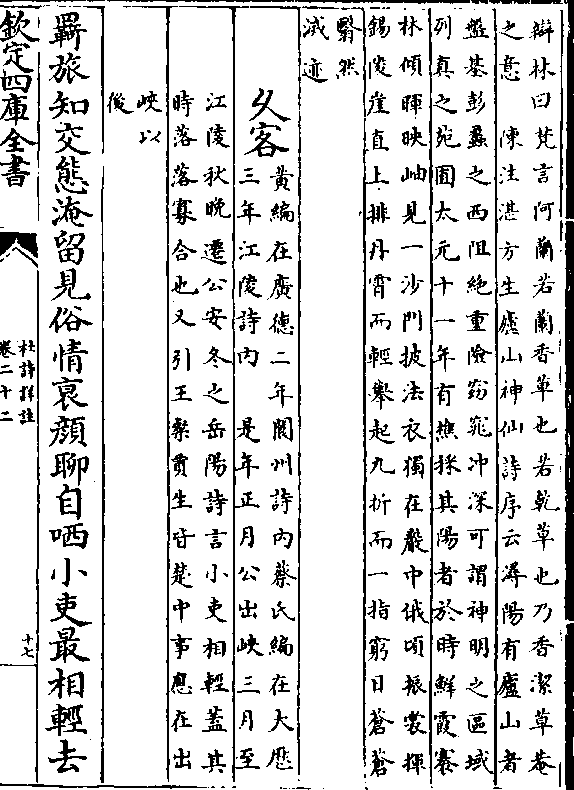 辯林曰梵言阿蘭若蘭香草也若乾草也乃香潔草菴
之意　陳注湛方生廬山神仙詩序云潯陽有廬山者
盤基彭蠡之西阻絶重險窈窕冲深可謂神明之區域
列真之苑囿太元十一年有樵採其陽者於時鮮霞褰
林傾暉映岫見一沙門披法衣獨在巖中俄頃振裳揮
錫凌崖直上排丹霄而輕舉起九折而一指窮日蒼蒼
翳然
滅迹
久客
黃編在廣德二年閬州詩内蔡氏編在大厯
三年江陵詩内　是年正月公出峽三月至
江陵秋晚遷公安冬之岳陽詩言小吏相輕蓋其
時落落寡合也又引王粲賈生皆楚中事應在出
峽以
後
羈旅知交態淹留見俗情衰顔聊自哂小吏最相輕去
欽定四庫全書
杜詩詳註
卷二十二
十七